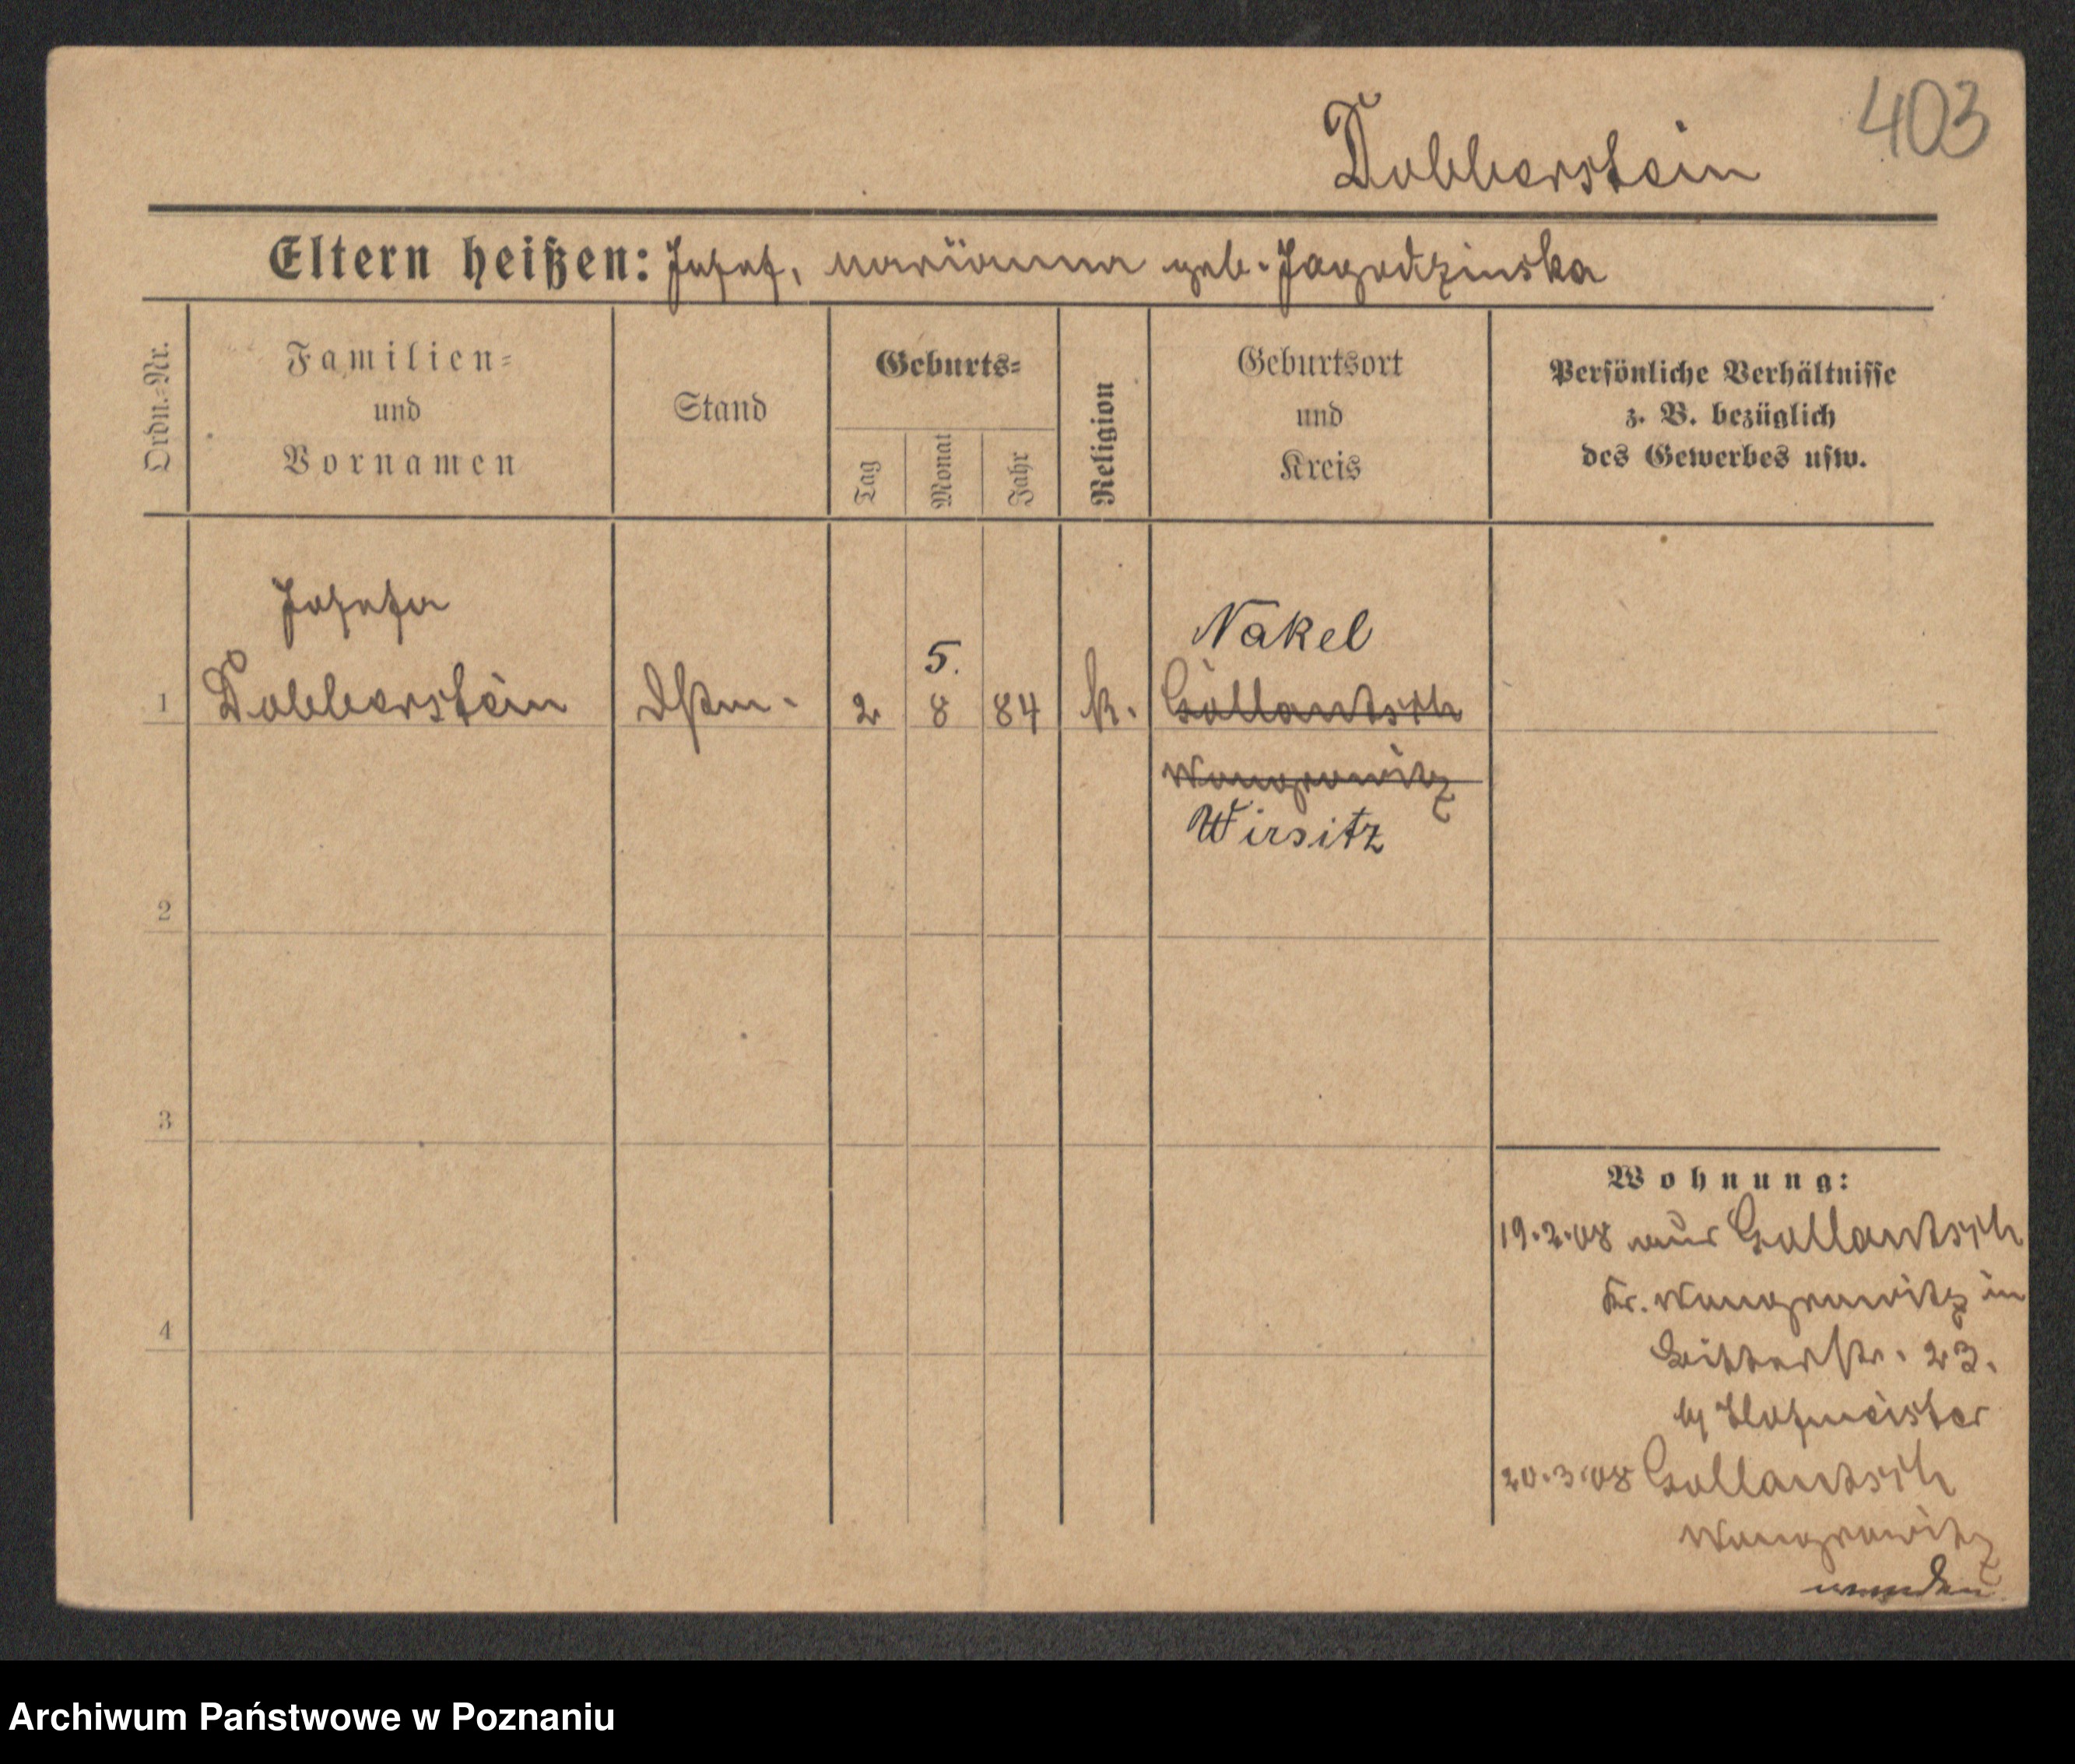 403
Dobberstein
Eltern heißen: Josef, Marianna geb. Jagodzinska
Ordn.-Nr.
Familien-
und
Vornamen
Stand
Geburts-
Tag
Monat
Jahr
Religion
Geburtsort
und
Kreis
Persönliche Verhältnisse
z. B. bezüglich
des Gewerbes usw.
Josefa
Nakel
5.
1 Dobberstein Dstm. 2 8 84 k. Gollantsch
Wongrowitz
Wirsitz
2
3
4
Wohnung:
19.2.08 aus Gollantsch
Kr. Wongrowitz in
23.
b/ Hofmeister
20.3.08 Gollantsch
Wongrowitz
wenden
Archiwum Państwowe w Poznaniu